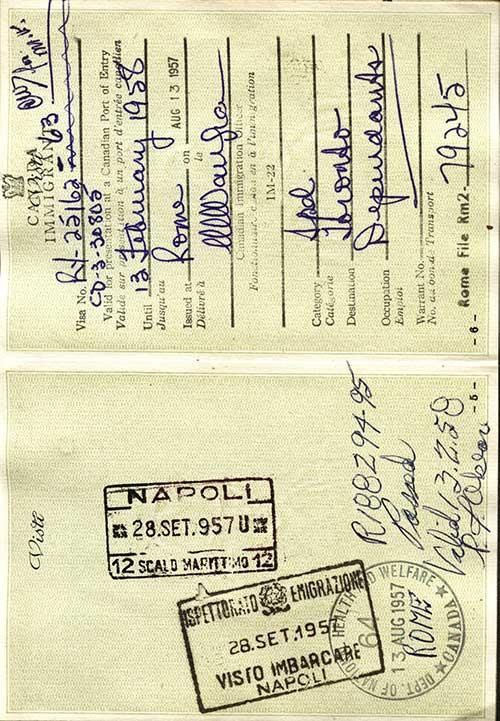 Visti
NAPOLI
28.SET.957 U
12 SCALO MARITTIMO 12
ISPETTORATO EMIGRAZIONE
28.SET.1957
VISTO IMBARCARE
NAPOLI
R188294-95
Passed
Valid 13.2.58
DEPT. OF NATIONAL HEALTH AND WELFARE
64
13 AUG 1957
ROME
CANADA
-5-
CANADA
IMMIGRANT
Visa No.
CD-3-30803
Valid for presentation at a Canadian Port of Entry
Valide sur présentation à un port d'entrée canadien
Until 13 February 1958
Jusqu'au
Issued at Rome on AUG 13 1957
Délivré à le
Canadian Immigration Officer
Fonctionnaire canadien à l'immigration
IM-22
Category
Catégorie
Destination Toronto
Occupation Dependants
Emploi
Warrant No.
No. du bon de Transport
Rome File Rm2- 79245
-6-